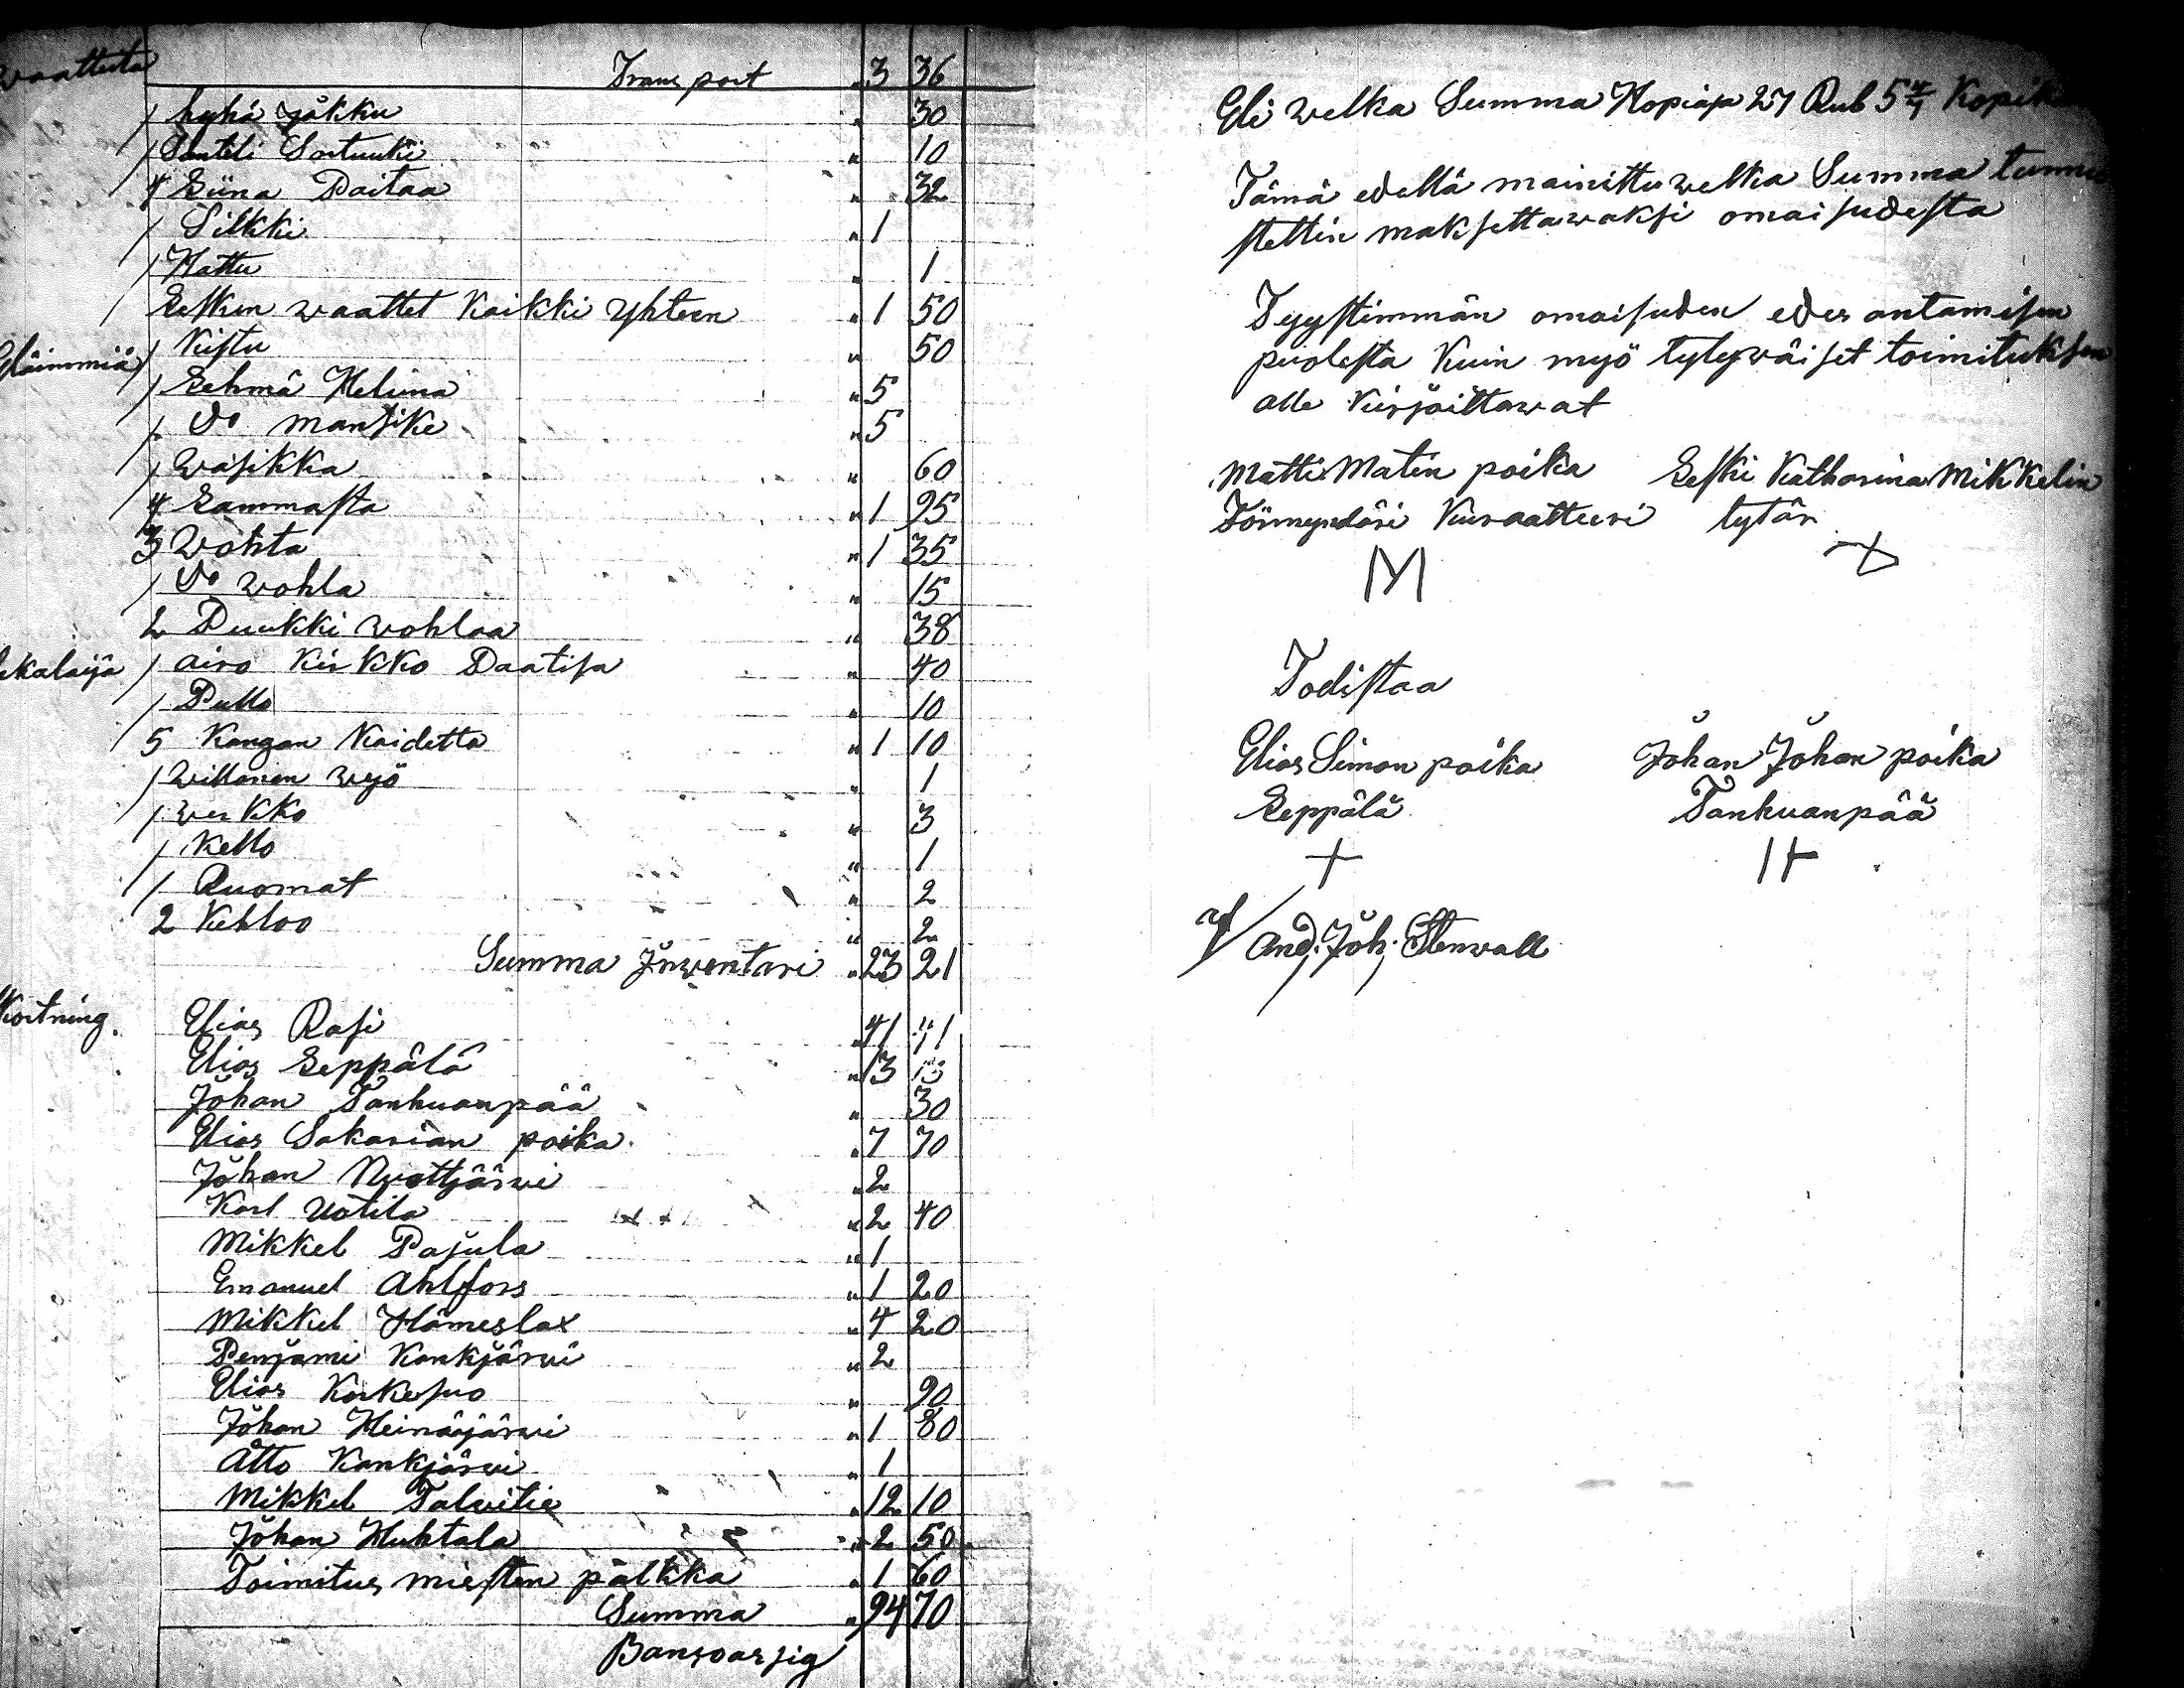 waatteita
Transport " 3 36
1 lyhä jakku " 30
1 Santeli Sortuuki " 10
4 Liina Paitaa " 32
1 Silkki " 1
1 Hattu " 1
Lesken waattet Kaikki yhteen " 1 50
1 Kistu " 50
Eläimmiä
1 Lehmä Heluna " 5
1 do mansike " 5
1 wasikka " 60
4 Lammasta " 1 95
3 Wohta " 1 35
1 do wohla " 15
2 Puukki wohlaa " 38
ekalaija 1 airo Kirkko Paatisa " 40
1 Pullo " 10
5 Kangan Kaidetta " 1 10
1 willanen wyö " 1
1 werkko " 3
1 Kello " 1
1 Ruomat " 2
2 Kehloo " 2
Summa Inwentari " 23 21
Kortning.
Elias Rasi " 41
Elias Seppälä " 13
Johan Tanhuanpää " 30
Elias Sakarian poika " 7 70
Johan Nyattjärwi " 2
Karl Uotila " 2 40
Mikkel Pajula " 1
Emanuel Ahlfors " 1 20
Mikkel Hämeslax " 4 20
Penjami Kankjärwi " 2
Elias Korkesuo " 90
Johan Heinäjärwi " 1 80
Atto Kankjärwi " 1
Mikkel Talwitie " 12 10
Johan Huhtala " 2 50
Toimitus miesten palkka " 1 60
Summa " 94 70
Eli welka Summa Hopiasa 27 Rub 5 4/7 Kopik
Tämä edellä mainittu welka Summa tunnu
stettin maksettawaksi omaisudesta
Tyystimmän omaisuden edes antamisen
puolesta Kuin myö tytywäiset toimituksen
alle Kirjoittawat
Matti Matin poika Leski Katharina Mikkelin
Förmyndäri Kuraatteeri tytär
M
Todistaa
Elias Simon poika Johan Johan poika
Seppälä Tanhuanpää
And: Joh: Stenwall